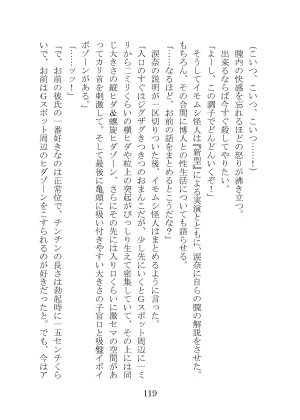 (こいつ、こいつ、こいつ……!)
膣内の快感を忘れるほどの怒りが沸き立つ。
出来るならば今すぐ殺してやりたい。
「よーし。この調子でどんどんいくぞ!」
そうしてイモムシ怪人は『新型』による実演とともに、涙奈に自らの膣の解説をさせた。
もちろん、その合間に博人との性生活についても語らせる。
「……なるほど、お前の話をまとめるとこうだな?」
涙奈の説明が一区切りついた後、イモムシ怪人はまとめるように言った。
「入口のすぐはジグザグきつきつのおまんこだが、少し先にいくとGスポット周辺に一ミ
リから二ミリぐらいの横ヒダや粒上の突起がびっしり生えて密集していて、その上には同
じ大きさの縦ヒダ&螺旋ヒダゾーン、さらにその先には入り口くらいに激セマの空間があ
ってカリ首を刺激して、そして最後に亀頭に吸い付きやすい大きさの子宮口と吸盤イボイ
ボゾーンがある。」
「……ッッ!」
「で、お前の彼氏の一番好きなのは正常位で、チンチンの長さは勃起時に一五センチくら
いで、お前はGスポット周辺のヒダゾーンをこすられるのが好きだったと。でも、今はア
119